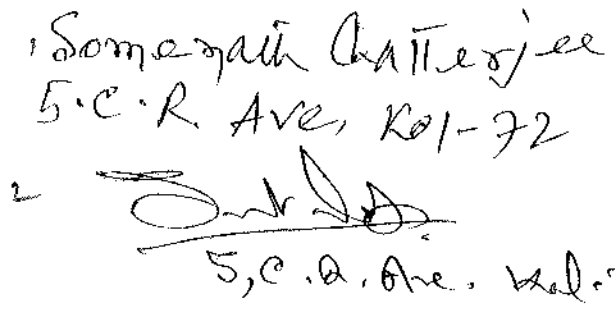 1 Somenath Chatterjee
5.C.R. Ave, Kol-72
2
5, C.R. Ave. Kol.